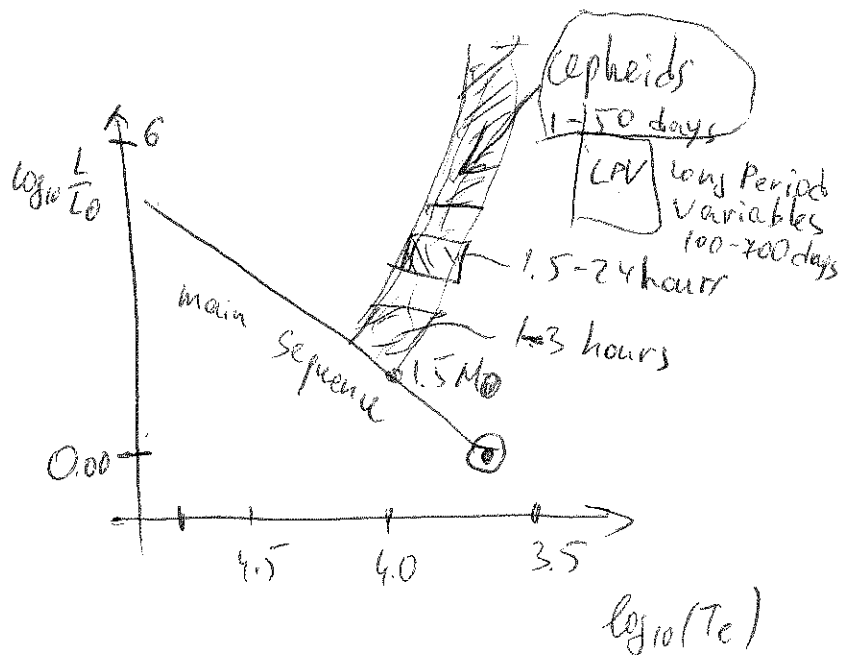 Cepheids
1-50 days
LPV
Long Period
Variables
100-700 days
6
log₁₀ L/L⊙
1.5-24 hours
1-3 hours
main
sequence
1.5 M⊙
0.00
4.5
4.0
3.5
log₁₀(Te)